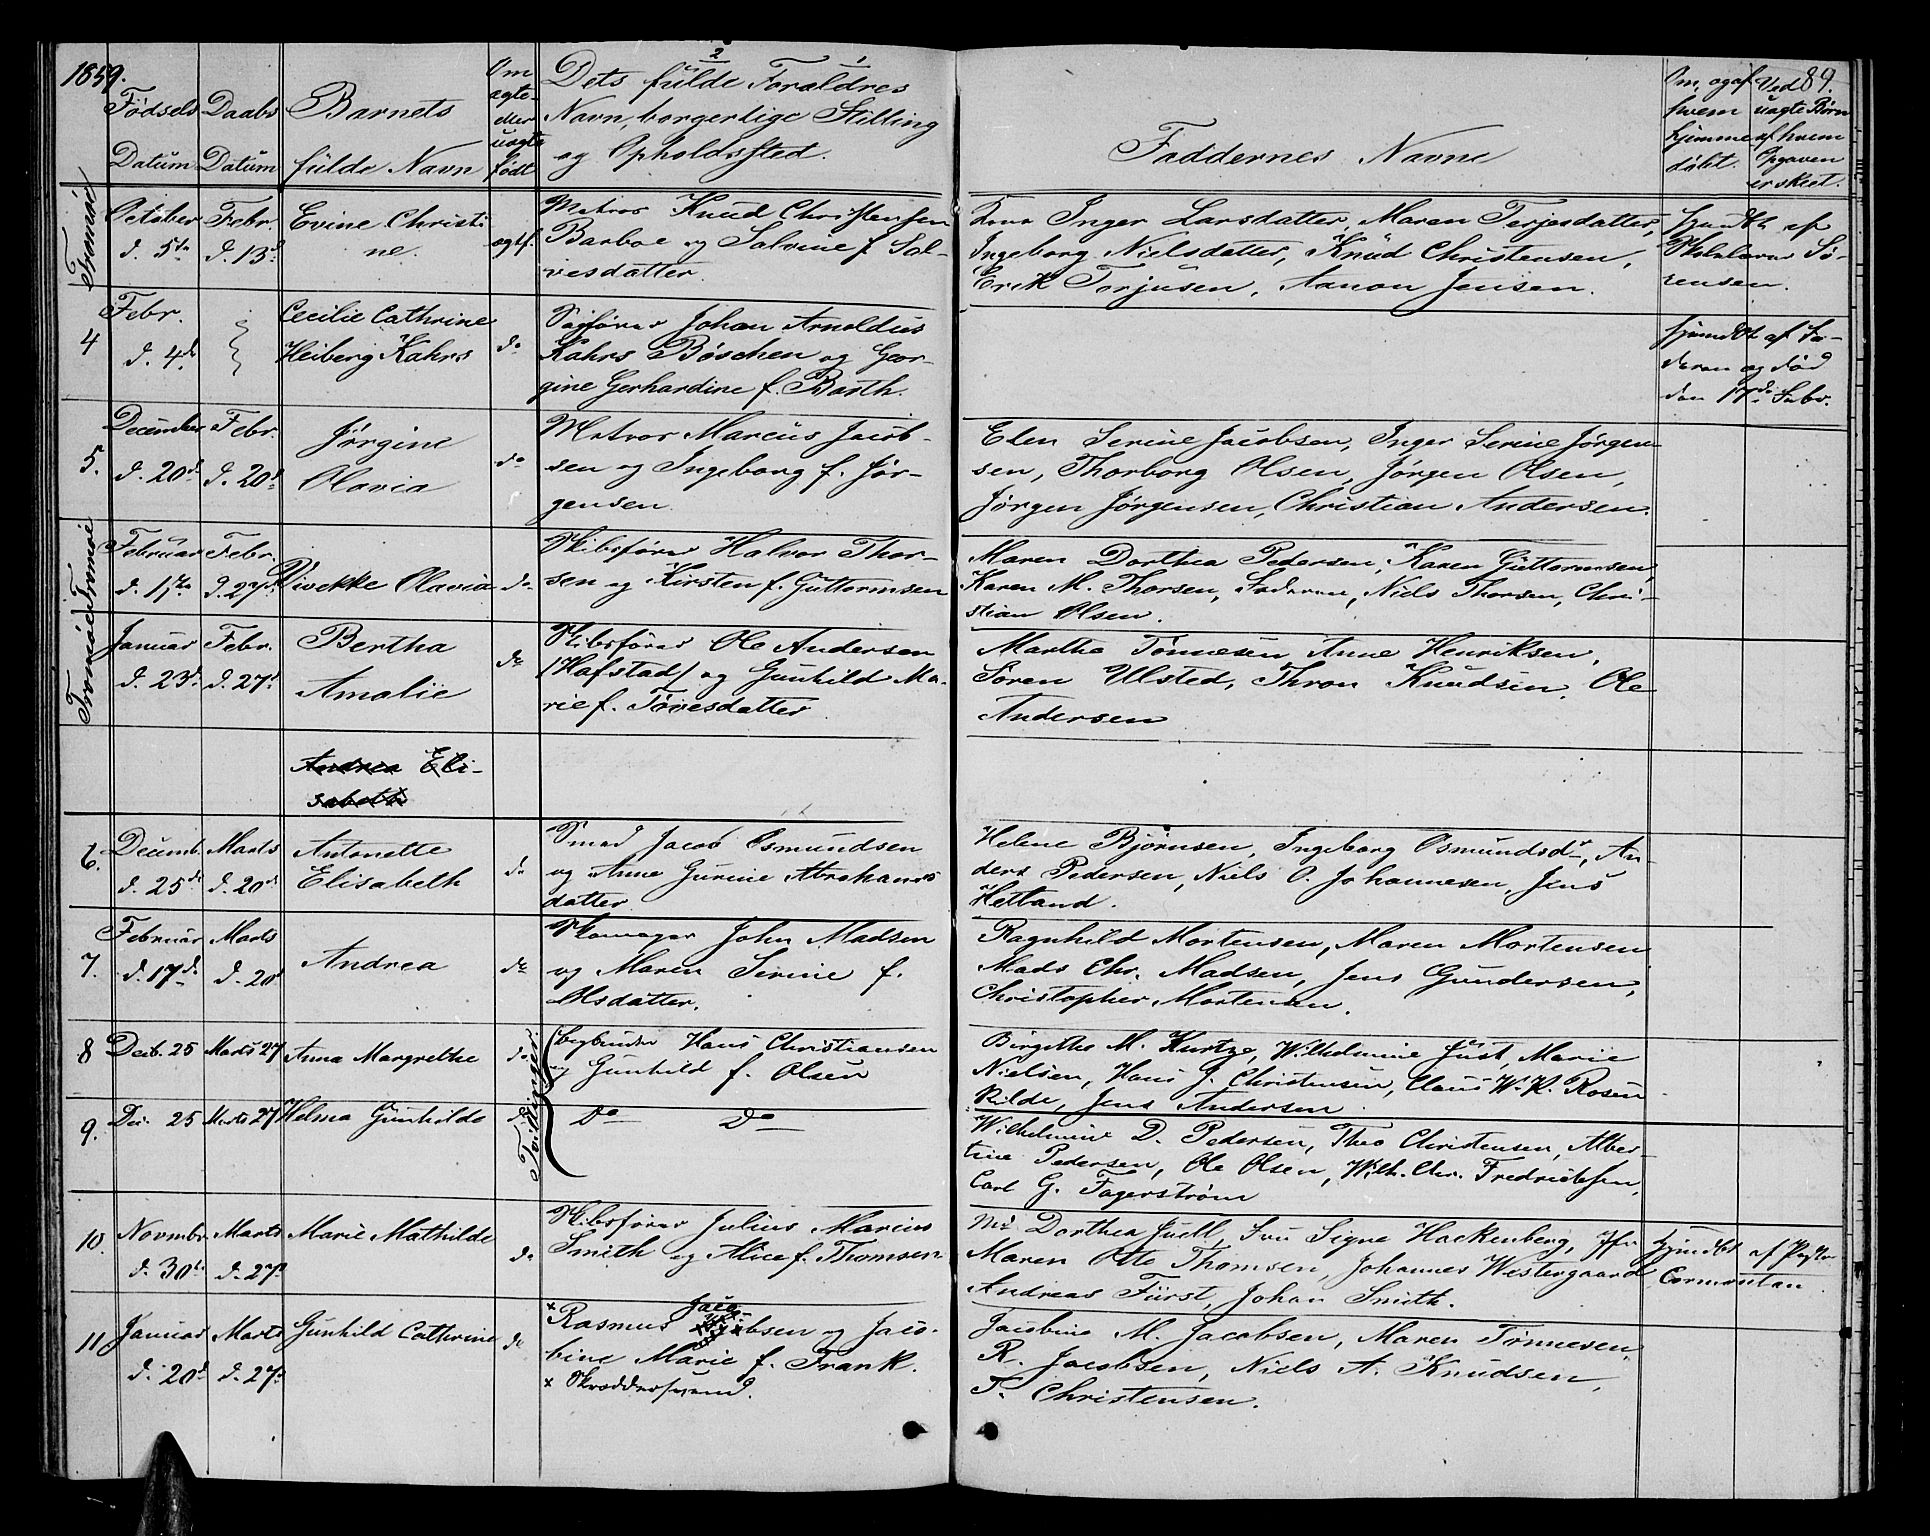 1859.
89.
Fødsels Datum
Daabs Datum
Barnets fulde Navn
Om ægte eller uægte født
Dets fulde Forældres
Navn, borgerlige Stilling
og Opholdssted.
Faddernes Navne
Om, og af hvem hjemmedøbt.
Ved uægte Børn af hvem Opgaven er skeet.
Tromøe
October d. 5te
Febr. d. 13d
Evine Christine.
ægtef.
Matros Knud Christensen
Barboe og Salvine f. Salvesdatter
Kone Inger Larsdatter, Maren Terjesdatter,
Ingeborg Nielsdatter, Knud Christensen,
Erik Torjusen, Aanon Jensen.
hjmdt af
Skolelærer Sørensen.
4
Febr. d. 4de
Cecilie Cathrine
Heiberg Kahrs
do
Sagfører Johan Arnoldus
Kahrs Bøschen og Georgine Gerhardine f. Barth.
hjemdt af Faderen og død
den 17de Febr.
5.
December d. 20d
Febr. d. 20d
Jørgine
Olavia
do
Matros Marcus Jacobsen og Ingeborg f. Jørgensen
Elen Serine Jacobsen, Inger Serine Jørgensen, Thorborg Olsen, Jørgen Olsen,
Jørgen Jørgensen, Christian Andersen.
Tromøe
Februar d. 1ste
Febr. d. 27d
Vivekke Olavia
do
Skibsfører Halvor Thorsen og Kirsten f. Guttormsen
Maren Dorthea Pedersen, Karen Guttormsen,
Karen M. Thorsen, Faderen, Niels Thorsen, Christian Olsen.
Tromøe
Januar d. 23d
Febr. d. 27d
Bertha
Amalie
do
Skibsfører Ole Andersen
/Hafstad/ og Gunhild Marie f. Tøvesdatter
Martha Tønnesen Anne Henriksen,
Søren Ulsted, Thron Knudsen, Ole
Andersen
Andrea Elisabeth
6.
Decemb. d. 25de
Marts d. 20de
Antonette
Elisabeth
do
Smed Jacob Osmundsen
og Anne Gurine Abrahamsdatter
Helene Bjørnsen, Ingeborg Osmundsdr, Anders Pedersen, Niels O. Johannesen, Jens
Hetland.
7.
Februar d. 17d
Marts d. 20
Andrea
do
Skomager John Madsen
og Maren Serine f.
Olsdatter.
Ragnhild Mortensen, Maren Mortensen
Mads Chr. Madsen, Jens Gundersen,
Christopher Mortensen.
8
Decb. 25
Marts 27
Anna Margrethe
do
Tvillinger
Bogbinder Hans Christiansen
og Gunhild f. Olsen
Birgitte M. Kurtze, Wilhelmine Just, Marie
Nielsen, Hans J. Christensen, Claus W. K. Rosenkilde, Jens Andersen.
9.
Dec. 25
Marts 27
Helma Gunhilde
do
Do Do
Wilhelmine D. Pedersen, Theo Christensen, Albertine Pedersen, Ole Olsen, Wilh. Chr. Fredriksen,
Carl G. Fagerstrøm
10.
Novmbr d. 30te
Marts d. 27d
Marie Mathilde
do
Skibsfører Julius Marius
Smith og Alice f. Thomsen
Md Dorthea Juell, Fru Signe Hackenberg, Jfr
Maren Otte Thomsen, Johannes Westergaard,
Andreas Fürst, Johan Smith.
hjmdbt af Pastor
Cormontan
11
Januar d. 20d
Marts d. 27d
Gunhild Cathrine
do
× Rasmus Jacobsen og Jacobine Marie f. Frank.
× Skræddersvend.
Jacobine M. Jacobsen, Maren Tønnesen,
R. Jacobsen, Niels A. Knudsen,
T. Christensen.